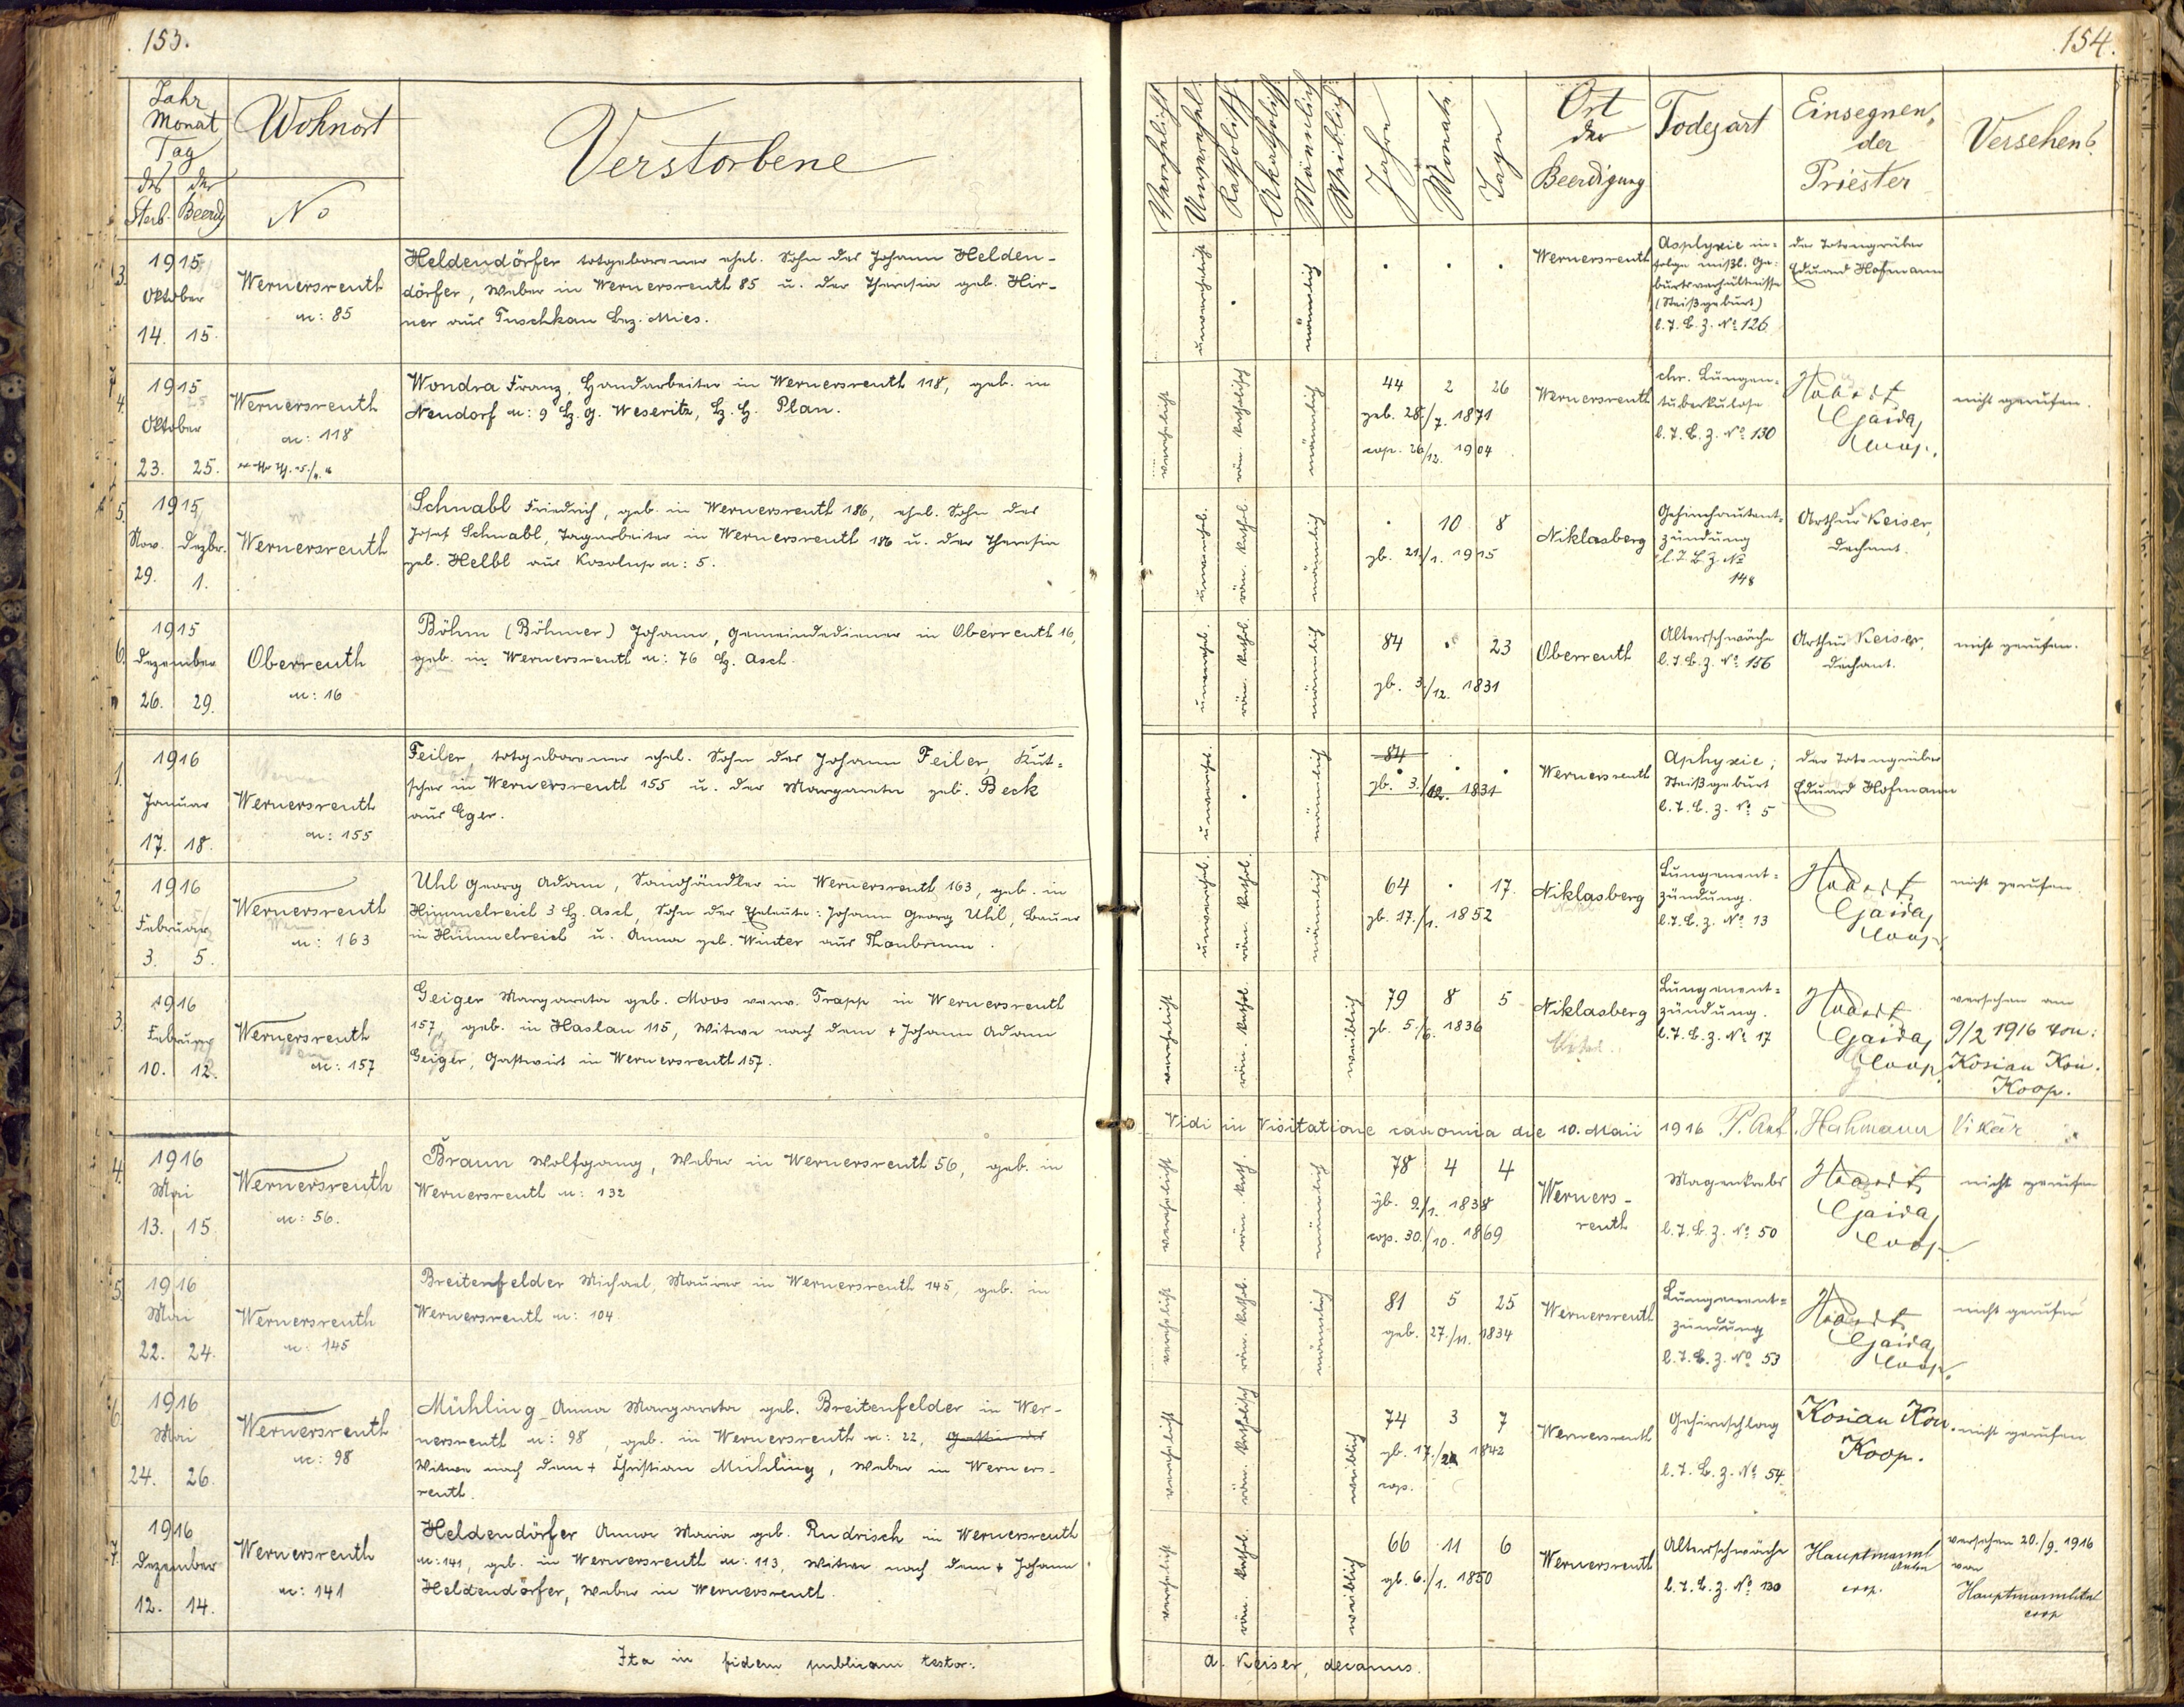 153.
Jahr
Monat
Tag
des Sterb.
der Beerdg
Wohnort
No
Verstorbene
3.
1915
Oktober
14. 15.
Wernersreuth
N: 85
Heldendörfer totgeborener ehel. Sohn des Johann Helden-
dörfer, Weber in Wernersreuth 85 u. der Theresia geb. Hir-
ner aus Tuschkau Bez. Mies.
4.
1915
Oktober
23. 25.
Wernersreuth
N: 118
Wondra Franz, Handarbeiter in Wernersreuth 118, geb. in
Neudorf N: 9 B. G. Weseritz, B. H. Plan.
5.
1915
Nov. Dezbr.
29. 1.
Wernersreuth
Schnabl Friedrich, geb. in Wernersreuth 186, ehel. Sohn des
Josef Schnabl, Tagarbeiter in Wernersreuth 186 u. der Theresia
geb. Helbl aus Kosolup N: 5.
6.
1915
Dezember
26. 29.
Oberreuth
N: 16
Böhm (Böhmer) Johann, Gemeindediener in Oberreuth 16,
geb. in Wernersreuth N: 76 B. Asch.
1.
1916
Januar
17. 18.
Wernersreuth
N: 155
Feiler, totgeborener ehel. Sohn des Johann Feiler, Kut=
scher in Wernersreuth 155 u. der Margareta geb. Beck
aus Eger.
2.
1916
Februar
3. 5.
Wernersreuth
N: 163
Uhl Georg Adam, Sandhändler in Wernersreuth 163, geb. in
Himmelreich 3 B. Asch, Sohn der Eheleute: Johann Georg Uhl, Bauer
in Himmelreich u. Anna geb. Winter aus Thonbrunn.
3.
1916
Februar
10. 12.
Wernersreuth
N: 157
Geiger Margareta geb. Moos verw. Trapp in Wernersreuth
157, geb. in Haslau 115, Witwe nach dem + Johann Adam
Geiger, Gastwirt in Wernersreuth 157.
4.
1916
Mai
13. 15.
Wernersreuth
N: 56.
Braun Wolfgang, Weber in Wernersreuth 56, geb. in
Wernersreuth N: 132
5.
1916
Mai
22. 24.
Wernersreuth
N: 145
Breitenfelder Michael, Maurer in Wernersreuth 145, geb. in
Wernersreuth N: 104
6.
1916
Mai
24. 26.
Wernersreuth
N: 98
Mühling Anna Margareta geb. Breitenfelder in Wer-
nersreuth N: 98, geb. in Wernersreuth N: 22,
Witwe nach dem + Christian Mühling, Weber in Werners-
reuth.
7.
1916
Dezember
12. 14.
Wernersreuth
N: 141
Heldendörfer Anna Maria geb. Rudrisch in Wernersreuth
N: 141, geb. in Wernersreuth N: 113, Witwe nach dem + Johann
Heldendörfer, Weber in Wernersreuth.
Ita in fidem publicam testor:
154.
Verehelicht
Unverehel.
Katholisch
Akatholisch
Männlich
Weiblich
Jahre
Monate
Tage
Ort
der
Beerdigung
Todesart
Einsegnen,
der
Priester
Versehen b.
unverehelicht
männlich
Wernersreuth
Asphyxie in=
folge mißl. Ge=
burtsverhältnisse
(Steißgeburt)
l. T. B. Z. No 126
der Totengräber
Eduard Hofmann
verehelicht
röm. katholisch
männlich
44 2 26
geb. 28./7. 1871
cop. 26/12. 1904
Wernersreuth
chr. Lungen=
tuberkulose
l. T. B. Z. No 130
Gaida,
Coop.
nicht gerufen.
unverehel.
röm. kathol.
männlich
10 8
gb. 21./1. 1915
Niklasberg
Gehirnhautent=
zündung
l. T. B. Z. No
148
Arthur Keiser,
Dechant.
unverehel.
röm. kathol.
männlich
84 23
gb. 3./12. 1831
Oberreuth
Altersschwäche
l. T. B. Z. No 156
Arthur Keiser,
Dechant.
nicht gerufen.
unverehel.
männlich
84
gb. 3./12. 1831
Wernersreuth
Aphyxie;
Steißgeburt
l. T. B. Z. No 5
der Totengräber
Eduard Hofmann
unverehel.
röm. kathol.
männlich
64 17.
gb. 17./1. 1852
Niklasberg
Lungenent=
zündung.
l. T. B. Z. No 13
Gaida,
Coop.
nicht gerufen.
verehelicht
röm. kathol.
weiblich
79 8 5
gb. 5./6. 1836
Niklasberg
Lungenent=
zündung.
l. T. B. Z. No 17
Gaida,
Coop.
versehen am
9/2 1916 von:
Kosian Kon.
Koop.
Vidi in Visitatione canonica die 10. Maii 1916 P. Ant. Hahmann Vikär
verehelicht
röm. kath.
männlich
78 4 4
gb. 9./1. 1838
cop. 30./10. 1869
Werners-
reuth
Magenkrebs
l. T. B. Z. No 50
Gaida,
Coop.
nicht gerufen
verehelicht
röm. kathol.
männlich
81 5 25
geb. 27./11. 1834
Wernersreuth
Lungenent=
zündung
l. T. B. Z. No 53
Gaida,
Coop.
nicht gerufen
verehelicht
röm. katholisch
weiblich
74 3 7
gb. 17./2. 1842
cop.
Wernersreuth
Gehirnschlag
l. T. B. Z. No 54.
Kosian Kon.
Koop.
nicht gerufen
verehelicht
röm. kathol.
weiblich
66 11 6
gb. 6./1. 1850
Wernersreuth
Altersschwäche
l. T. B. Z. No 130
Hauptmannl
coop.
versehen 20./9. 1916
von
Hauptmannl
coop
A. Keiser, decanus.